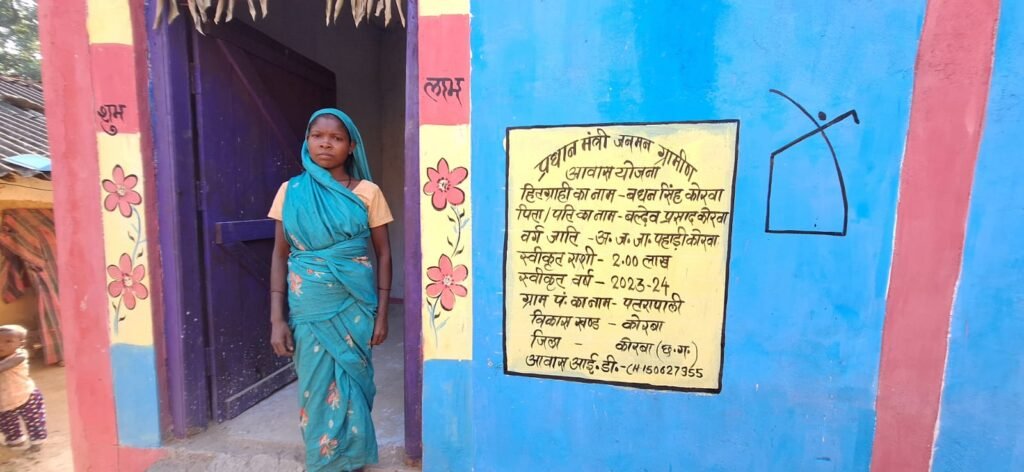 शुभ
लाभ
प्रधान मंत्री जनमन ग्रामीण
आवास योजना
हितग्राही का नाम - बधन सिंह कोरवा
पिता/पति का नाम - बल्देव प्रसाद कोरवा
वर्ग जाति - अ. ज. जा. पहाड़ी कोरवा
स्वीकृत राशी - 2.00 लाख
स्वीकृत वर्ष - 2023-24
ग्राम पं. का नाम - पतरापाली
विकास खण्ड - कोरबा
जिला - कोरबा (छ.ग.)
आवास आई.डी. - CH150627355